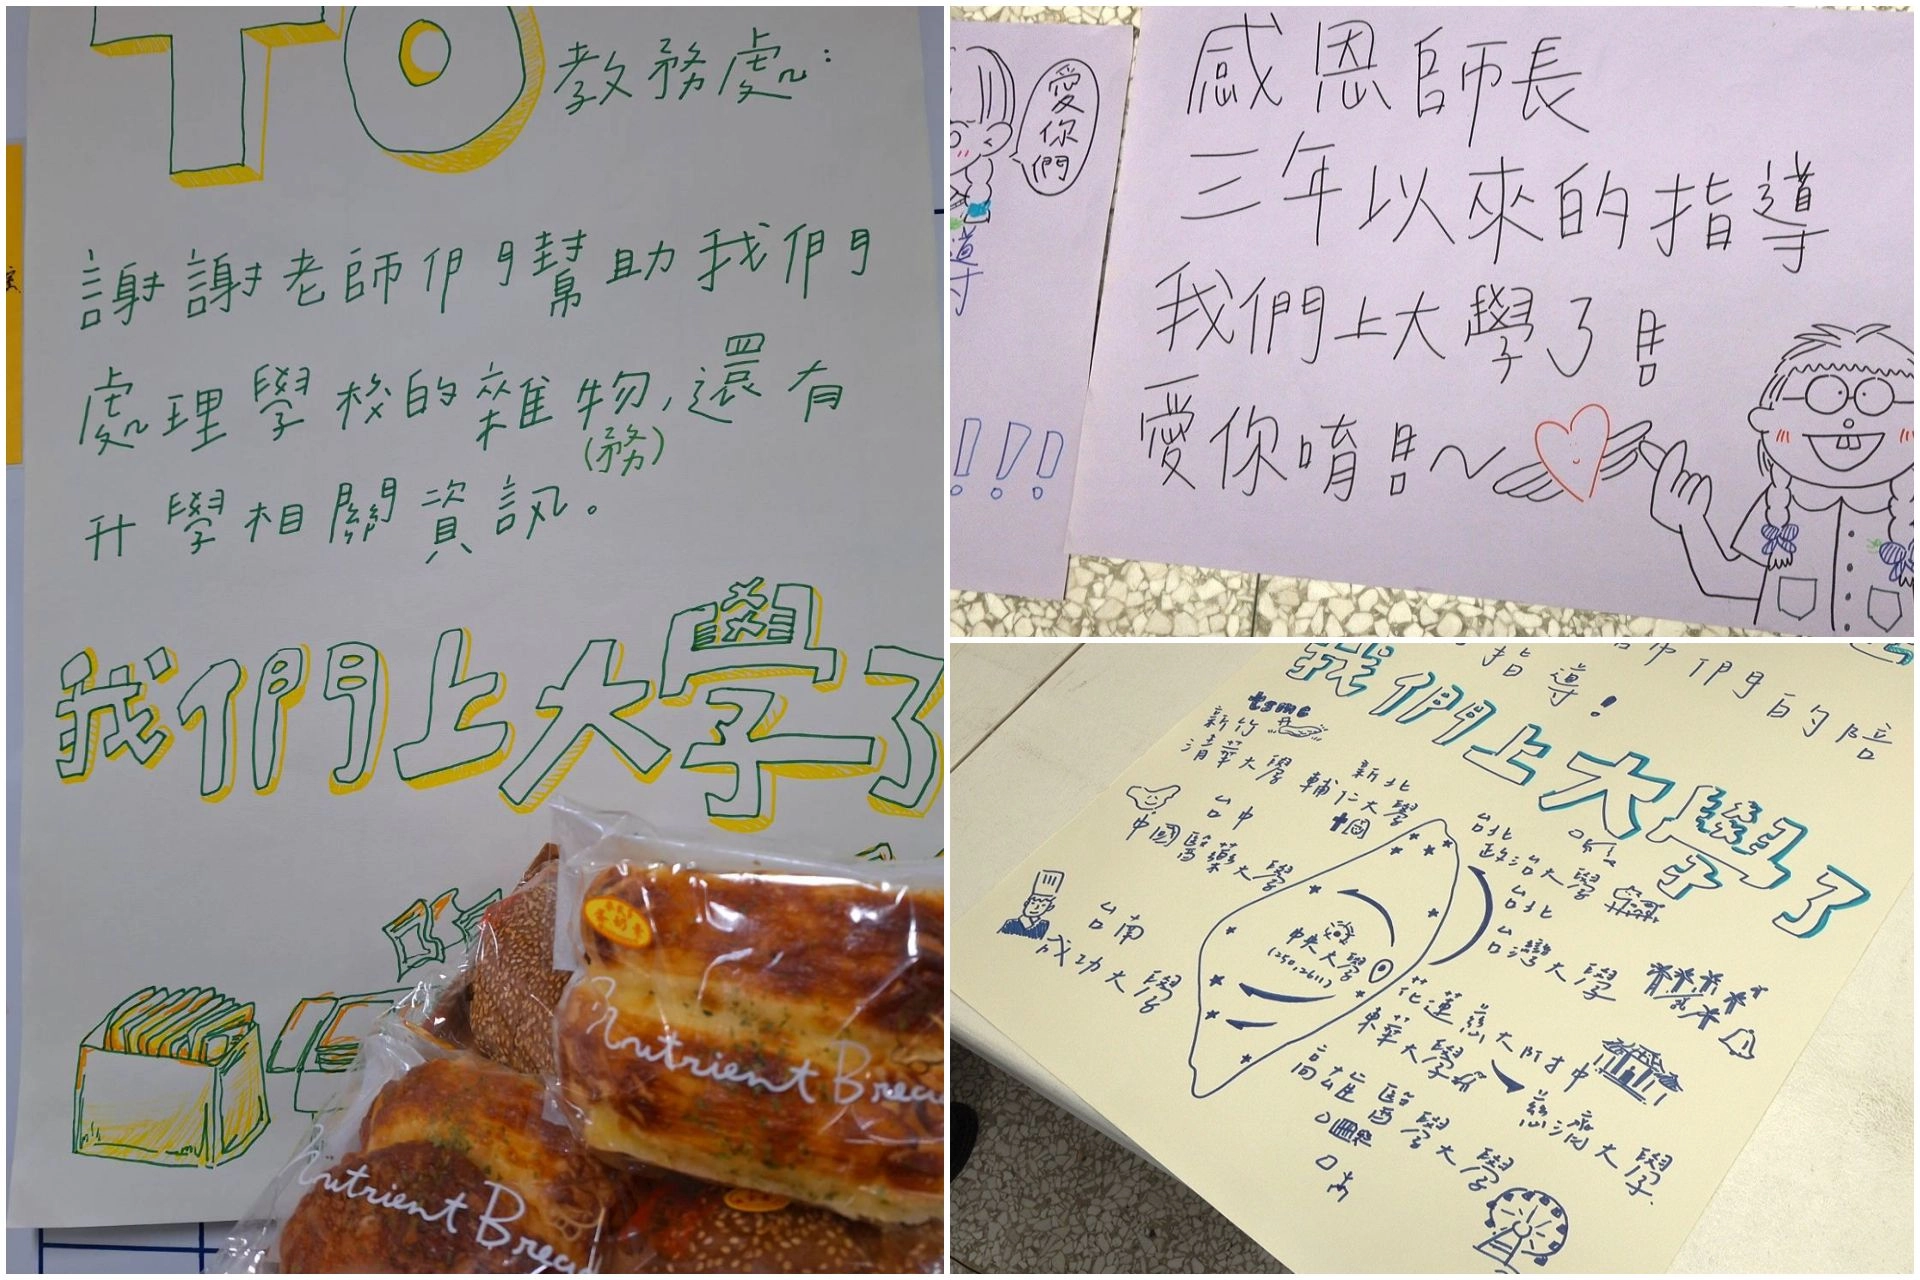 TO
教務處:
謝謝老師們幫助我們
處理學校的雜物,還有
(務)
升學相關資訊。
我們上大學了
Nutrient Bread
Nutrient Bread
愛你們
導
!!!
感恩師長
三年以來的指導
我們上大學了!!
愛你唷!!~
師們的陪
指導!
我們上大學了
tsmc
新竹
清華大學
新北
輔仁大學
台中
中國醫藥大學
台南
成功大學
中央大學
(250,2611)
台北
政治大學
台北
台灣大學
花蓮慈大附中
東華大學
慈濟大學
高雄醫學大學